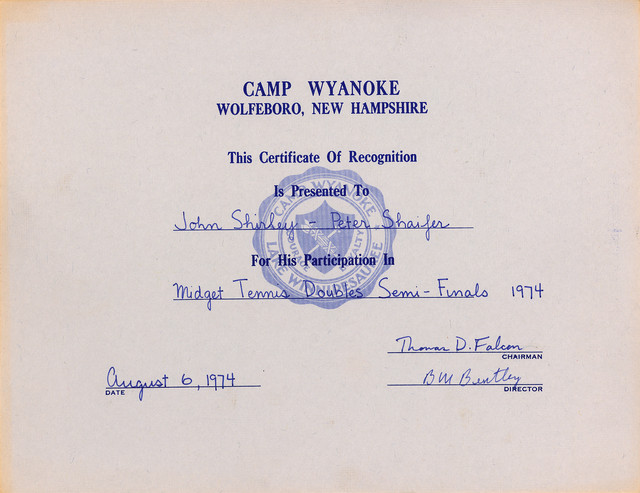 CAMP WYANOKE
WOLFEBORO, NEW HAMPSHIRE
This Certificate Of Recognition
Is Presented To
CAMP WYANOKE
John Shirley - Peter Shaifer
COURAGE LOYALTY
LAKE WINNIPESAUKEE
For His Participation In
Midget Tennis Doubles Semi-Finals 1974
Thomas D. Falcon
CHAIRMAN
August 6, 1974
DATE
BM Bentley
DIRECTOR